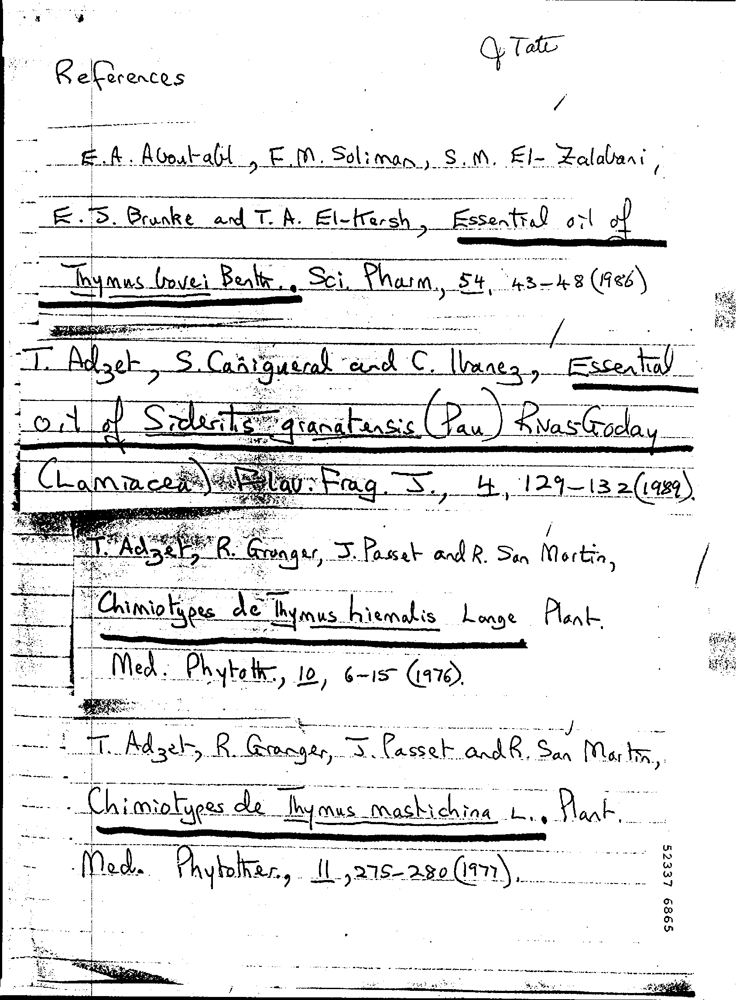 J Tate
References
E.A. Aboutabl, F.M. Soliman, S.M. El-Zalabani,
E.J. Brunke and T.A. El-Kersh, Essential oil of
Thymus bovei Benth.. Sci. Pharm., 54, 43-48 (1986)
T. Adzet, S. Cañigueral and C. Ibanez, Essential
oil of Sideritis granatensis (Pau) Rivas Goday
(Lamiacea) Flav. Frag. J., 4, 129-132 (1989).
T. Adzet, R. Granger, J. Passet and R. San Martin,
Chimiotypes de Thymus hiemalis Lange Plant.
Med. Phytoth., 10, 6-15 (1976).
T. Adzet, R. Granger, J. Passet and R. San Martin,
Chimiotypes de Thymus mastichina L.. Plant.
Med. Phytother., 11, 275-280 (1977).
52337 6865